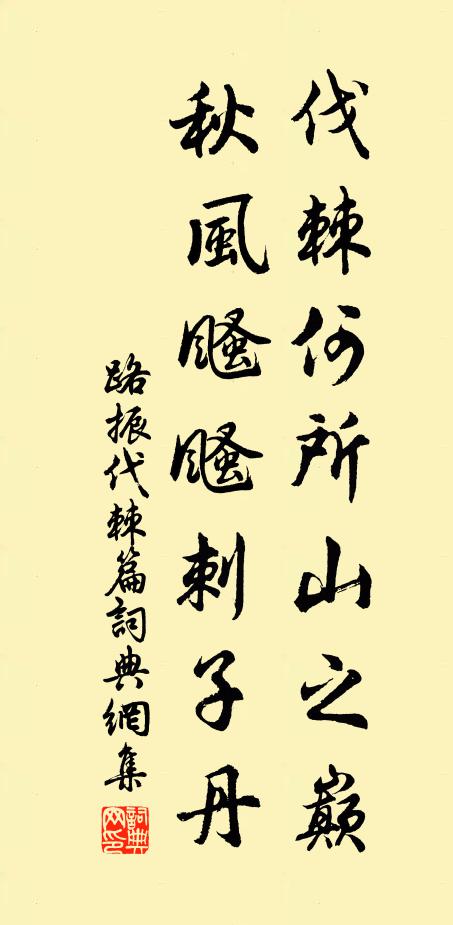 伐棘何所山之巔
秋風颾颾刺子丹
路振伐棘篇詞典網集
詞典
网印